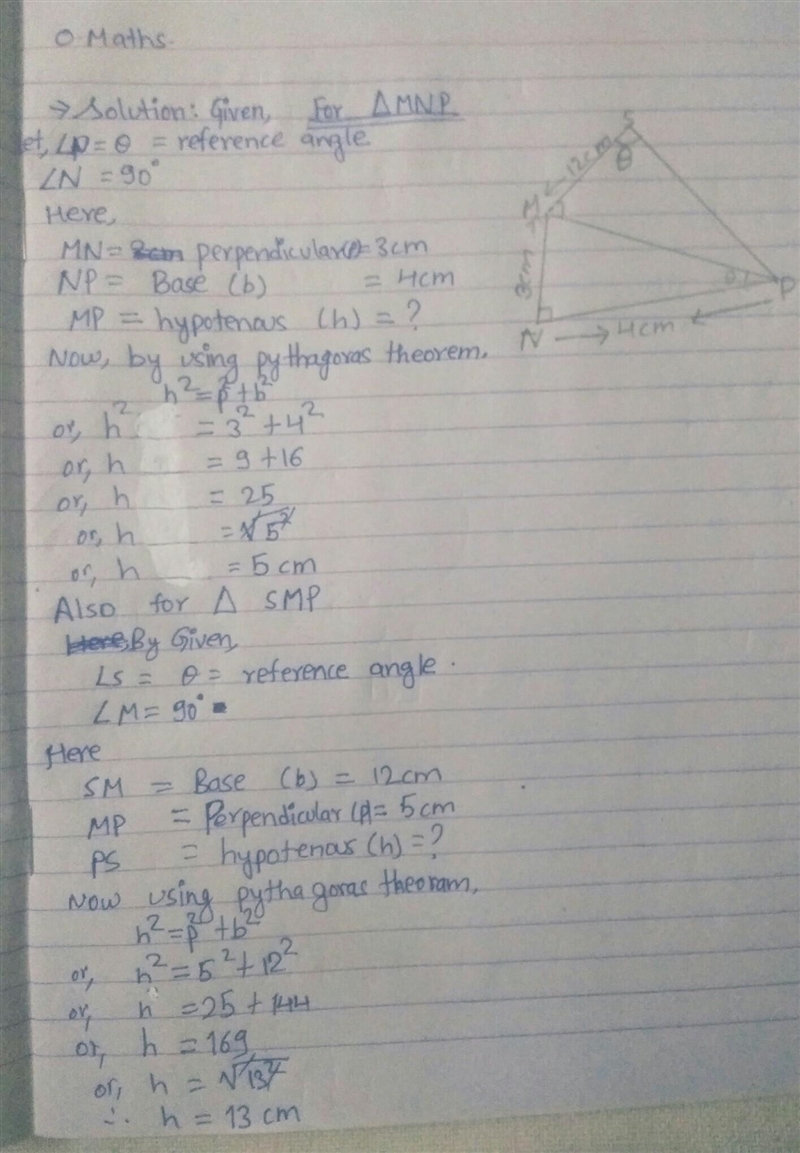 O. Maths.
→ Solution: Given, For ΔMNP
et, ∠P = θ = reference angle
∠N = 90°
Here,
MN = perpendicular(p) = 3cm
NP = Base (b) = 4cm
MP = hypotenous (h) = ?
Now, by using pythagoras theorem.
h² = p² + b²
or, h² = 3² + 4²
or, h = 9 + 16
or, h = 25
or, h = √5²
or, h = 5 cm
Also for Δ SMP
Here, By Given,
∠S = θ = reference angle.
∠M = 90°
Here
SM = Base (b) = 12cm
MP = Perpendicular (p) = 5cm
PS = hypotenas (h) = ?
Now using pythagoras theoram,
h² = p² + b²
or, h² = 5² + 12²
or, h = 25 + 144
or, h = 169
or, h = √13²
∴ h = 13 cm
S
12cm
θ
M
3cm
θ
P
N
4cm